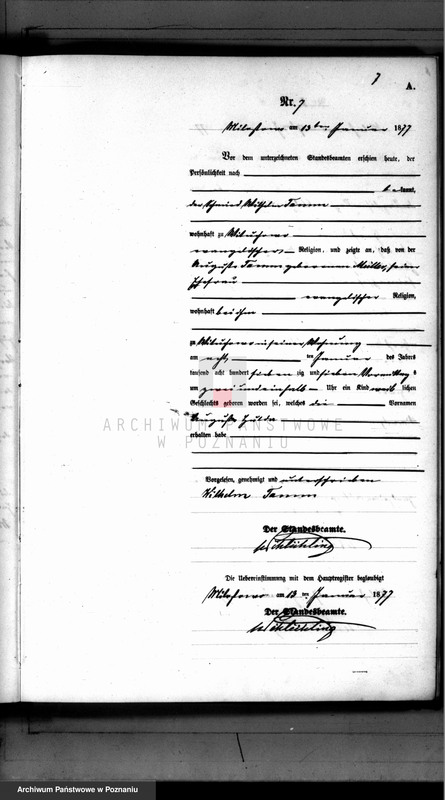 7
A.
Nr. 7
Milostowo am 13ten Januar 1877
Vor dem unterzeichneten Standesbeamten erschien heute, der
Persönlichkeit nach
bekannt,
der Schmied Wilhelm Tamm
wohnhaft zu
evangelischer Religion, und zeigte an, daß von der
Auguste Tamm geborenen Müller, seiner
Ehefrau
evangelischer Religion,
wohnhaft bei ihm
zu in seiner Wohnung
am acht ten Januar des Jahres
tausend acht hundert sieben zig und sieben Vormittags
um zwei und einhalb Uhr ein Kind weiblichen
Geschlechts geboren worden sei, welches die Vornamen
Auguste Hulda
erhalten habe
ARCHIWUM PAŃSTWOWE
W POZNANIU
Vorgelesen, genehmigt und unterschrieben
Wilhelm Tamm
Der Standesbeamte.
Die Uebereinstimmung mit dem Hauptregister beglaubigt
Milostowo am 13 ten Januar 1877
Der Standesbeamte.
Archiwum Państwowe w Poznaniu